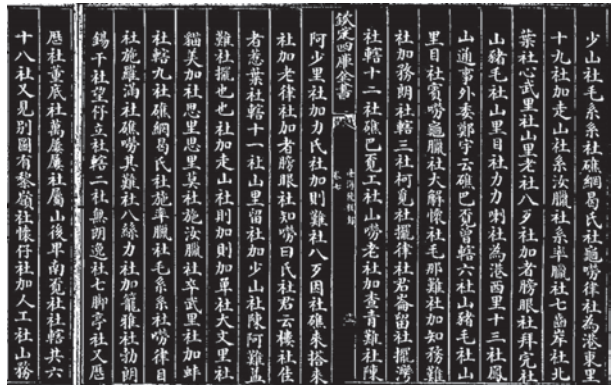 少山社毛系系社礁網曷氏社龜嘮律社為港東里
十九社加走山社系汝臘社系率臘社七齒岸社北
葉社心武里社山里老社八歹社加者膀眼社拜完社
山豬毛社山里目社力力喇社為港西里十三社鳳
山通事外委鄭宇云礁巴覔曾轄六社山豬毛社山
里目社賓嘮龜臘社大鮮懷社毛那難社加知務難
社加務朗社轄三社柯覓社擺律社君崙留社擺灣
社轄十二社礁巴覔工社山嘮老社加查青難社陳
欽定四庫全書
臺海使槎錄
卷七
二
阿少里社加力氏社加則難社八歹因社礁來搭來
社加老律社加者膀眼社知嘮曰氏社君云樓社佳
者惠葉社轄十一社山里留社加少山社陳阿難益
難社擺也也社加走山社則加則加單社大文里社
貓美加社思里思里莫社施汝臘社卒武里社加蚌
社轄九社礁網曷氏社施率臘社毛系系社嘮律目
社施羅滿社礁嘮其難社八絲力社加籠雅社勃朗
錫干社望仔立社轄二社無朗逸社七腳亭社又歷
歷社董底社萬屢屢社屬山後卑南覓社社轄共六
十八社又見別圖有黎嶺社懷仔社加人工社山務